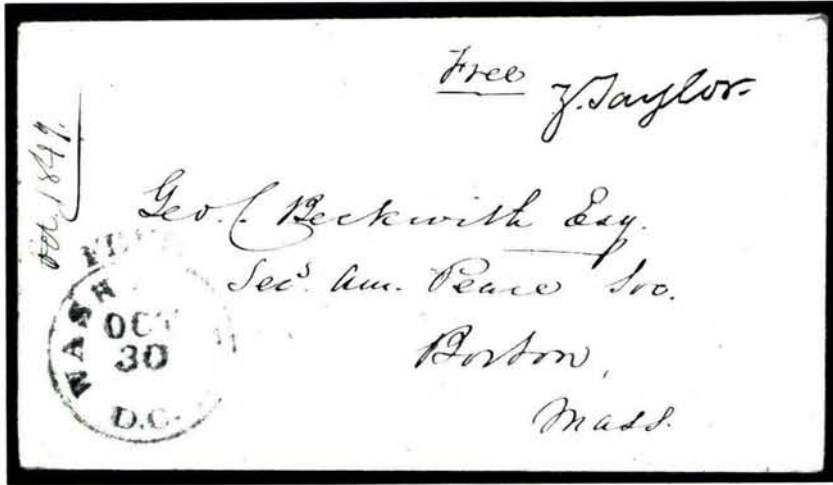 Free Z. Taylor.
Oct. 1849.
Geo. C. Beckwith Esq.
Sec. Am. Peace Soc.
Boston,
Mass.
FREE
WASH
OCT
30
D.C.